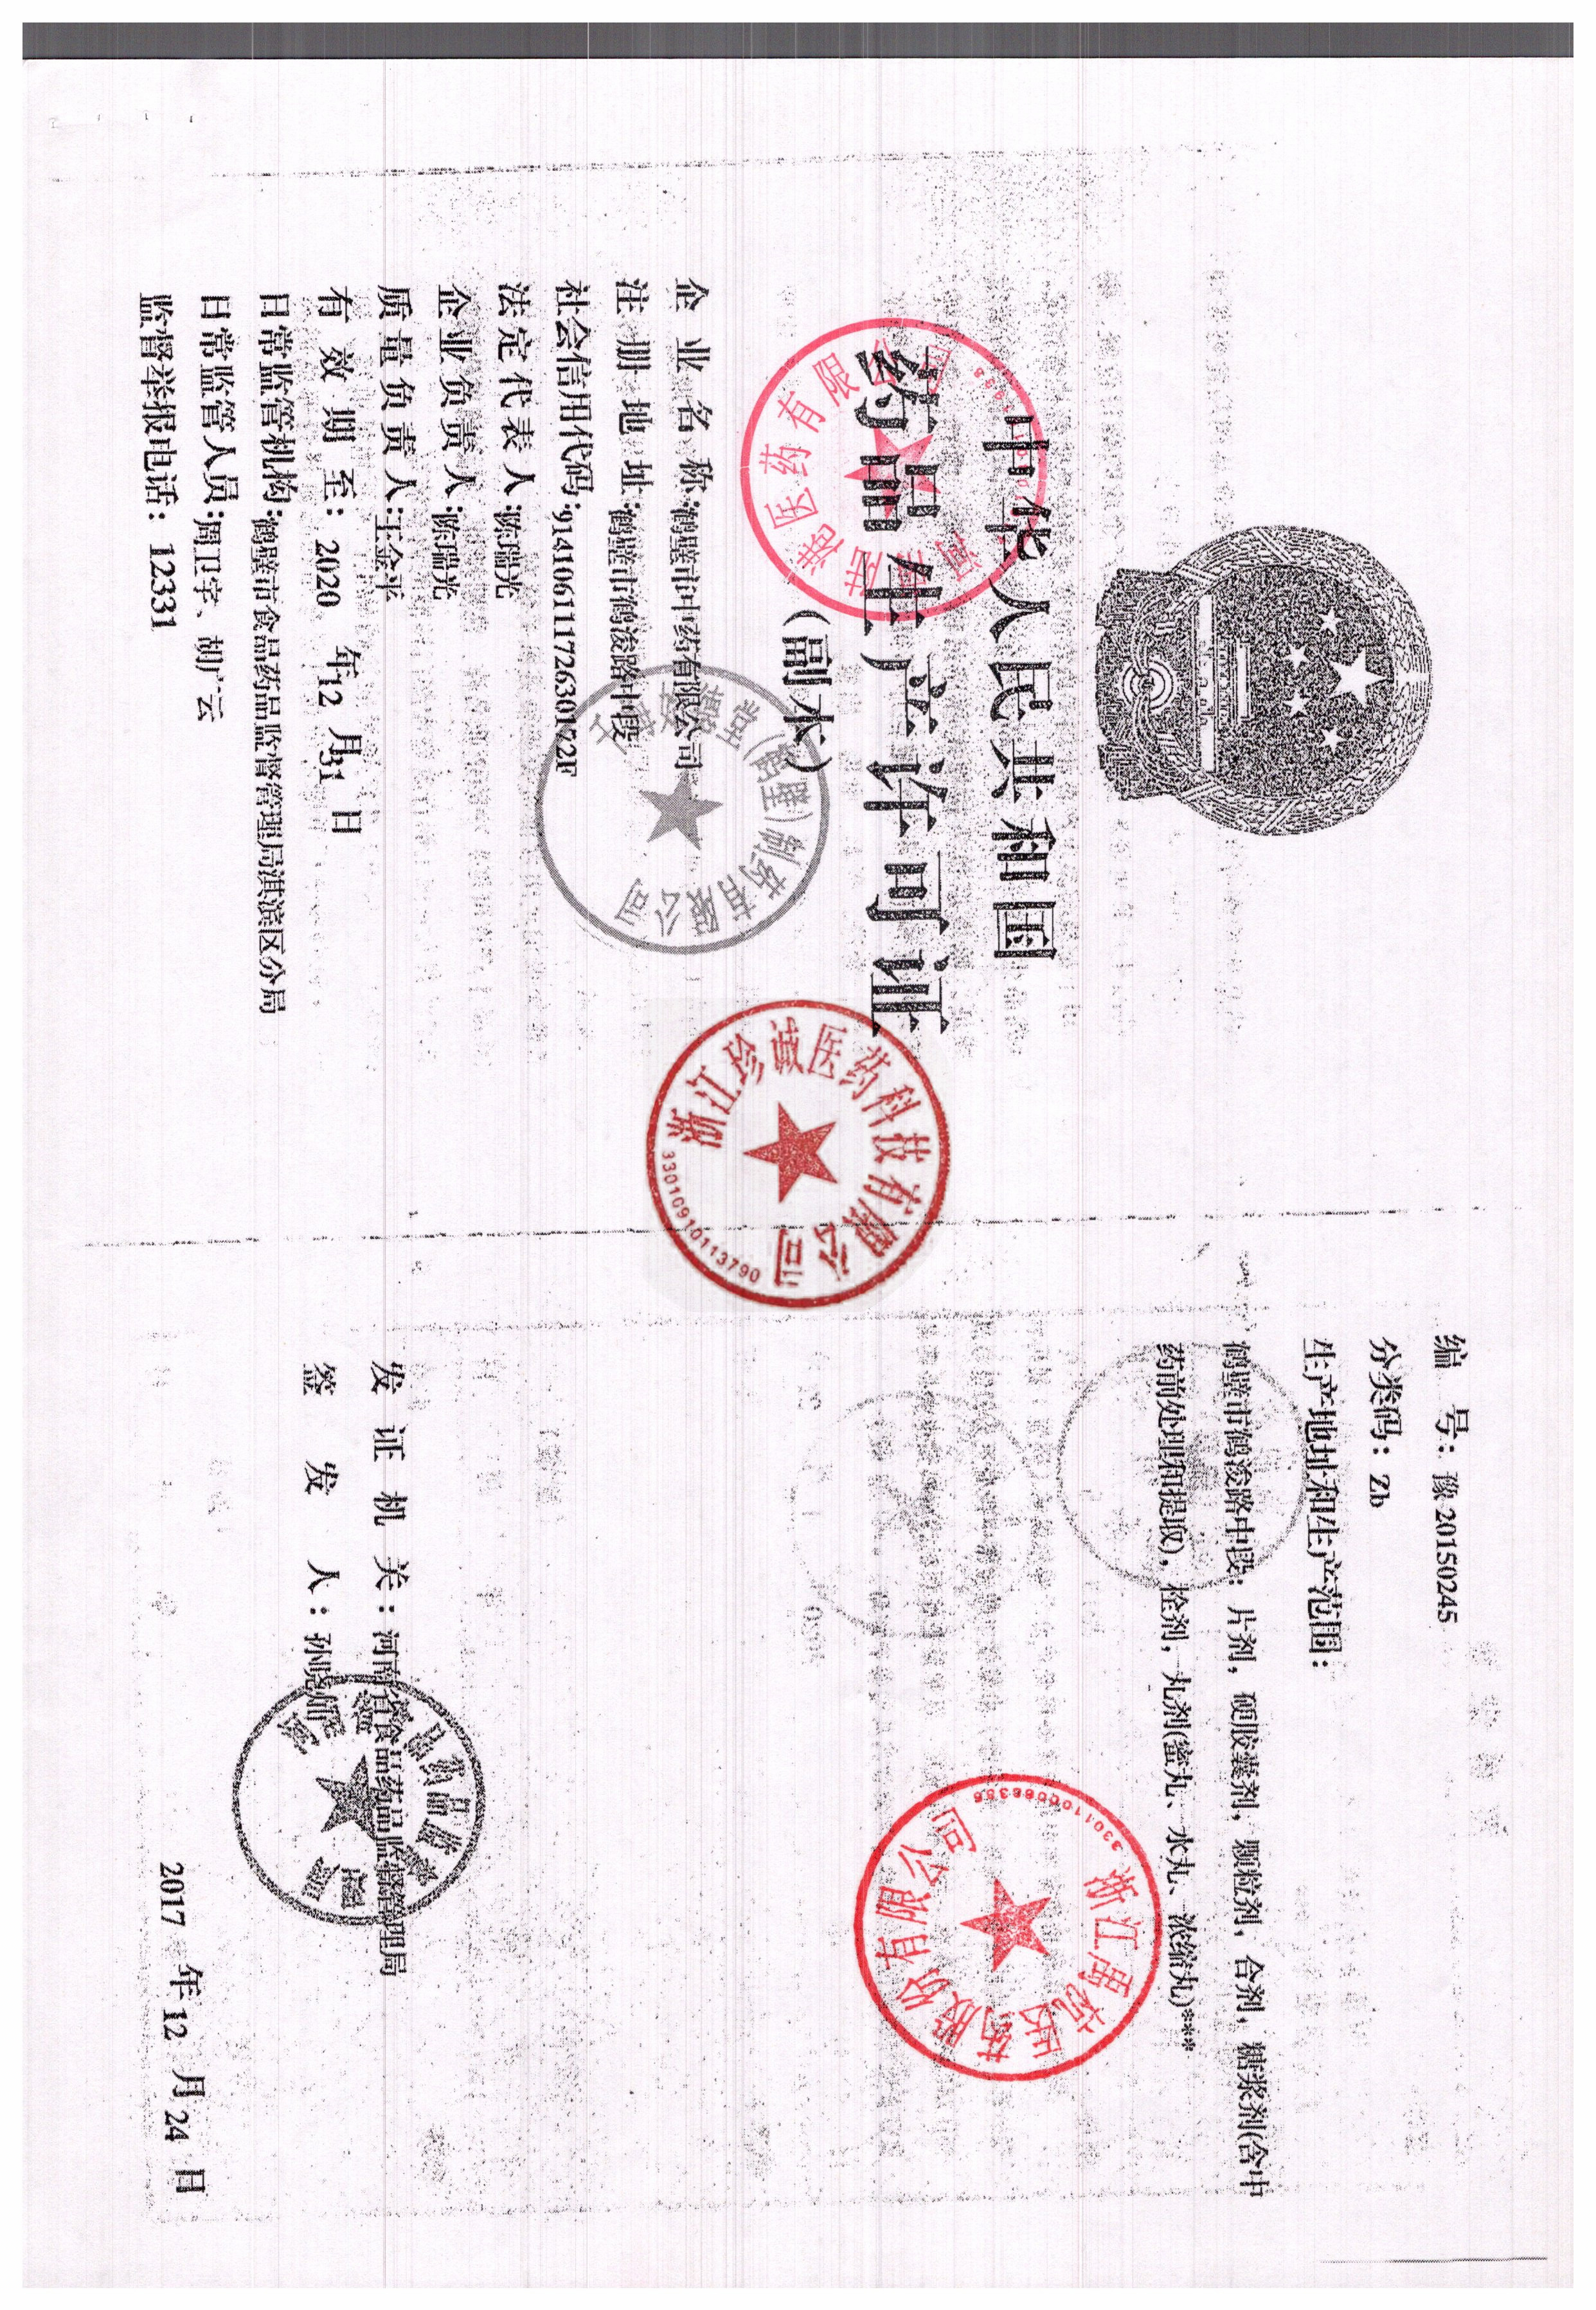 中华人民共和国
药品生产许可证
（副本）
企业名称：鹤壁市中药有限公司
注册地址：鹤壁市鹤浚路中段
社会信用代码：91410611172630172F
法定代表人：陈瑞光
企业负责人：陈瑞光
质量负责人：王金平
有效期至：2020 年12 月31 日
日常监管机构：鹤壁市食品药品监督管理局淇滨区分局
日常监管人员：周卫宇、胡广云
监督举报电话：12331
编 号：豫 20150245
分类码：Zb
生产地址和生产范围：
鹤壁市鹤浚路中段：片剂，硬胶囊剂，颗粒剂，合剂，糖浆剂(含中
药前处理和提取)，栓剂，丸剂(蜜丸、水丸、浓缩丸)***
发证机关：河南省食品药品监督管理局
签发人：孙晓
2017 年12 月24 日
医药有限
(鹤壁)制药有限公司
浙江珍诚医药科技有限公司
33010910113790
浙江禹杭医药股份有限公司